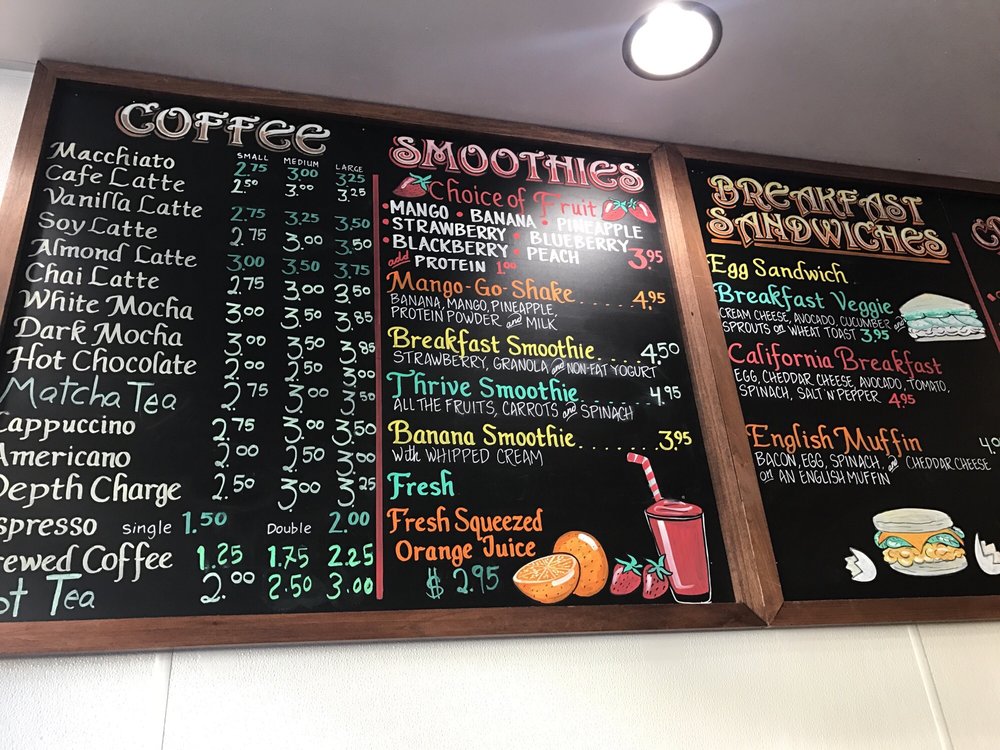 COFFEE
SMALL MEDIUM LARGE
Macchiato 2.75 3.00 3.25
Cafe Latte 2.50 3.00 3.25
Vanilla Latte 2.75 3.25 3.50
Soy Latte 2.75 3.00 3.50
Almond Latte 3.00 3.50 3.75
Chai Latte 2.75 3.00 3.50
White Mocha 3.00 3.50 3.85
Dark Mocha 3.00 3.50 3.85
Hot Chocolate 2.00 2.50 3.00
Matcha Tea 2.75 3.00 3.50
Cappuccino 2.75 3.00 3.50
Americano 2.00 2.50 3.00
Depth Charge 2.50 3.00 3.25
spresso single 1.50 Double 2.00
rewed Coffee 1.25 1.75 2.25
ot Tea 2.00 2.50 3.00
SMOOTHIES
Choice of Fruit
• MANGO • BANANA • PINEAPPLE
• STRAWBERRY • BLUEBERRY
• BLACKBERRY • PEACH 3.95
add PROTEIN 1.00
Mango-Go-Shake..... 4.95
BANANA, MANGO, PINEAPPLE,
PROTEIN POWDER and MILK
Breakfast Smoothie.... 4.50
STRAWBERRY, GRANOLA and NON-FAT YOGURT
Thrive Smoothie....... 4.95
ALL THE FRUITS, CARROTS and SPINACH
Banana Smoothie....... 3.95
with WHIPPED CREAM
Fresh
Fresh Squeezed
Orange Juice
$ 2.95
BREAKFAST
SANDWICHES
Egg Sandwich
Breakfast Veggie
CREAM CHEESE, AVOCADO, CUCUMBER and
SPROUTS on WHEAT TOAST 3.95
California Breakfast
EGG, CHEDDAR CHEESE, AVOCADO, TOMATO,
SPINACH, SALT 'N' PEPPER 4.95
English Muffin
BACON, EGG, SPINACH, and CHEDDAR CHEESE
on AN ENGLISH MUFFIN